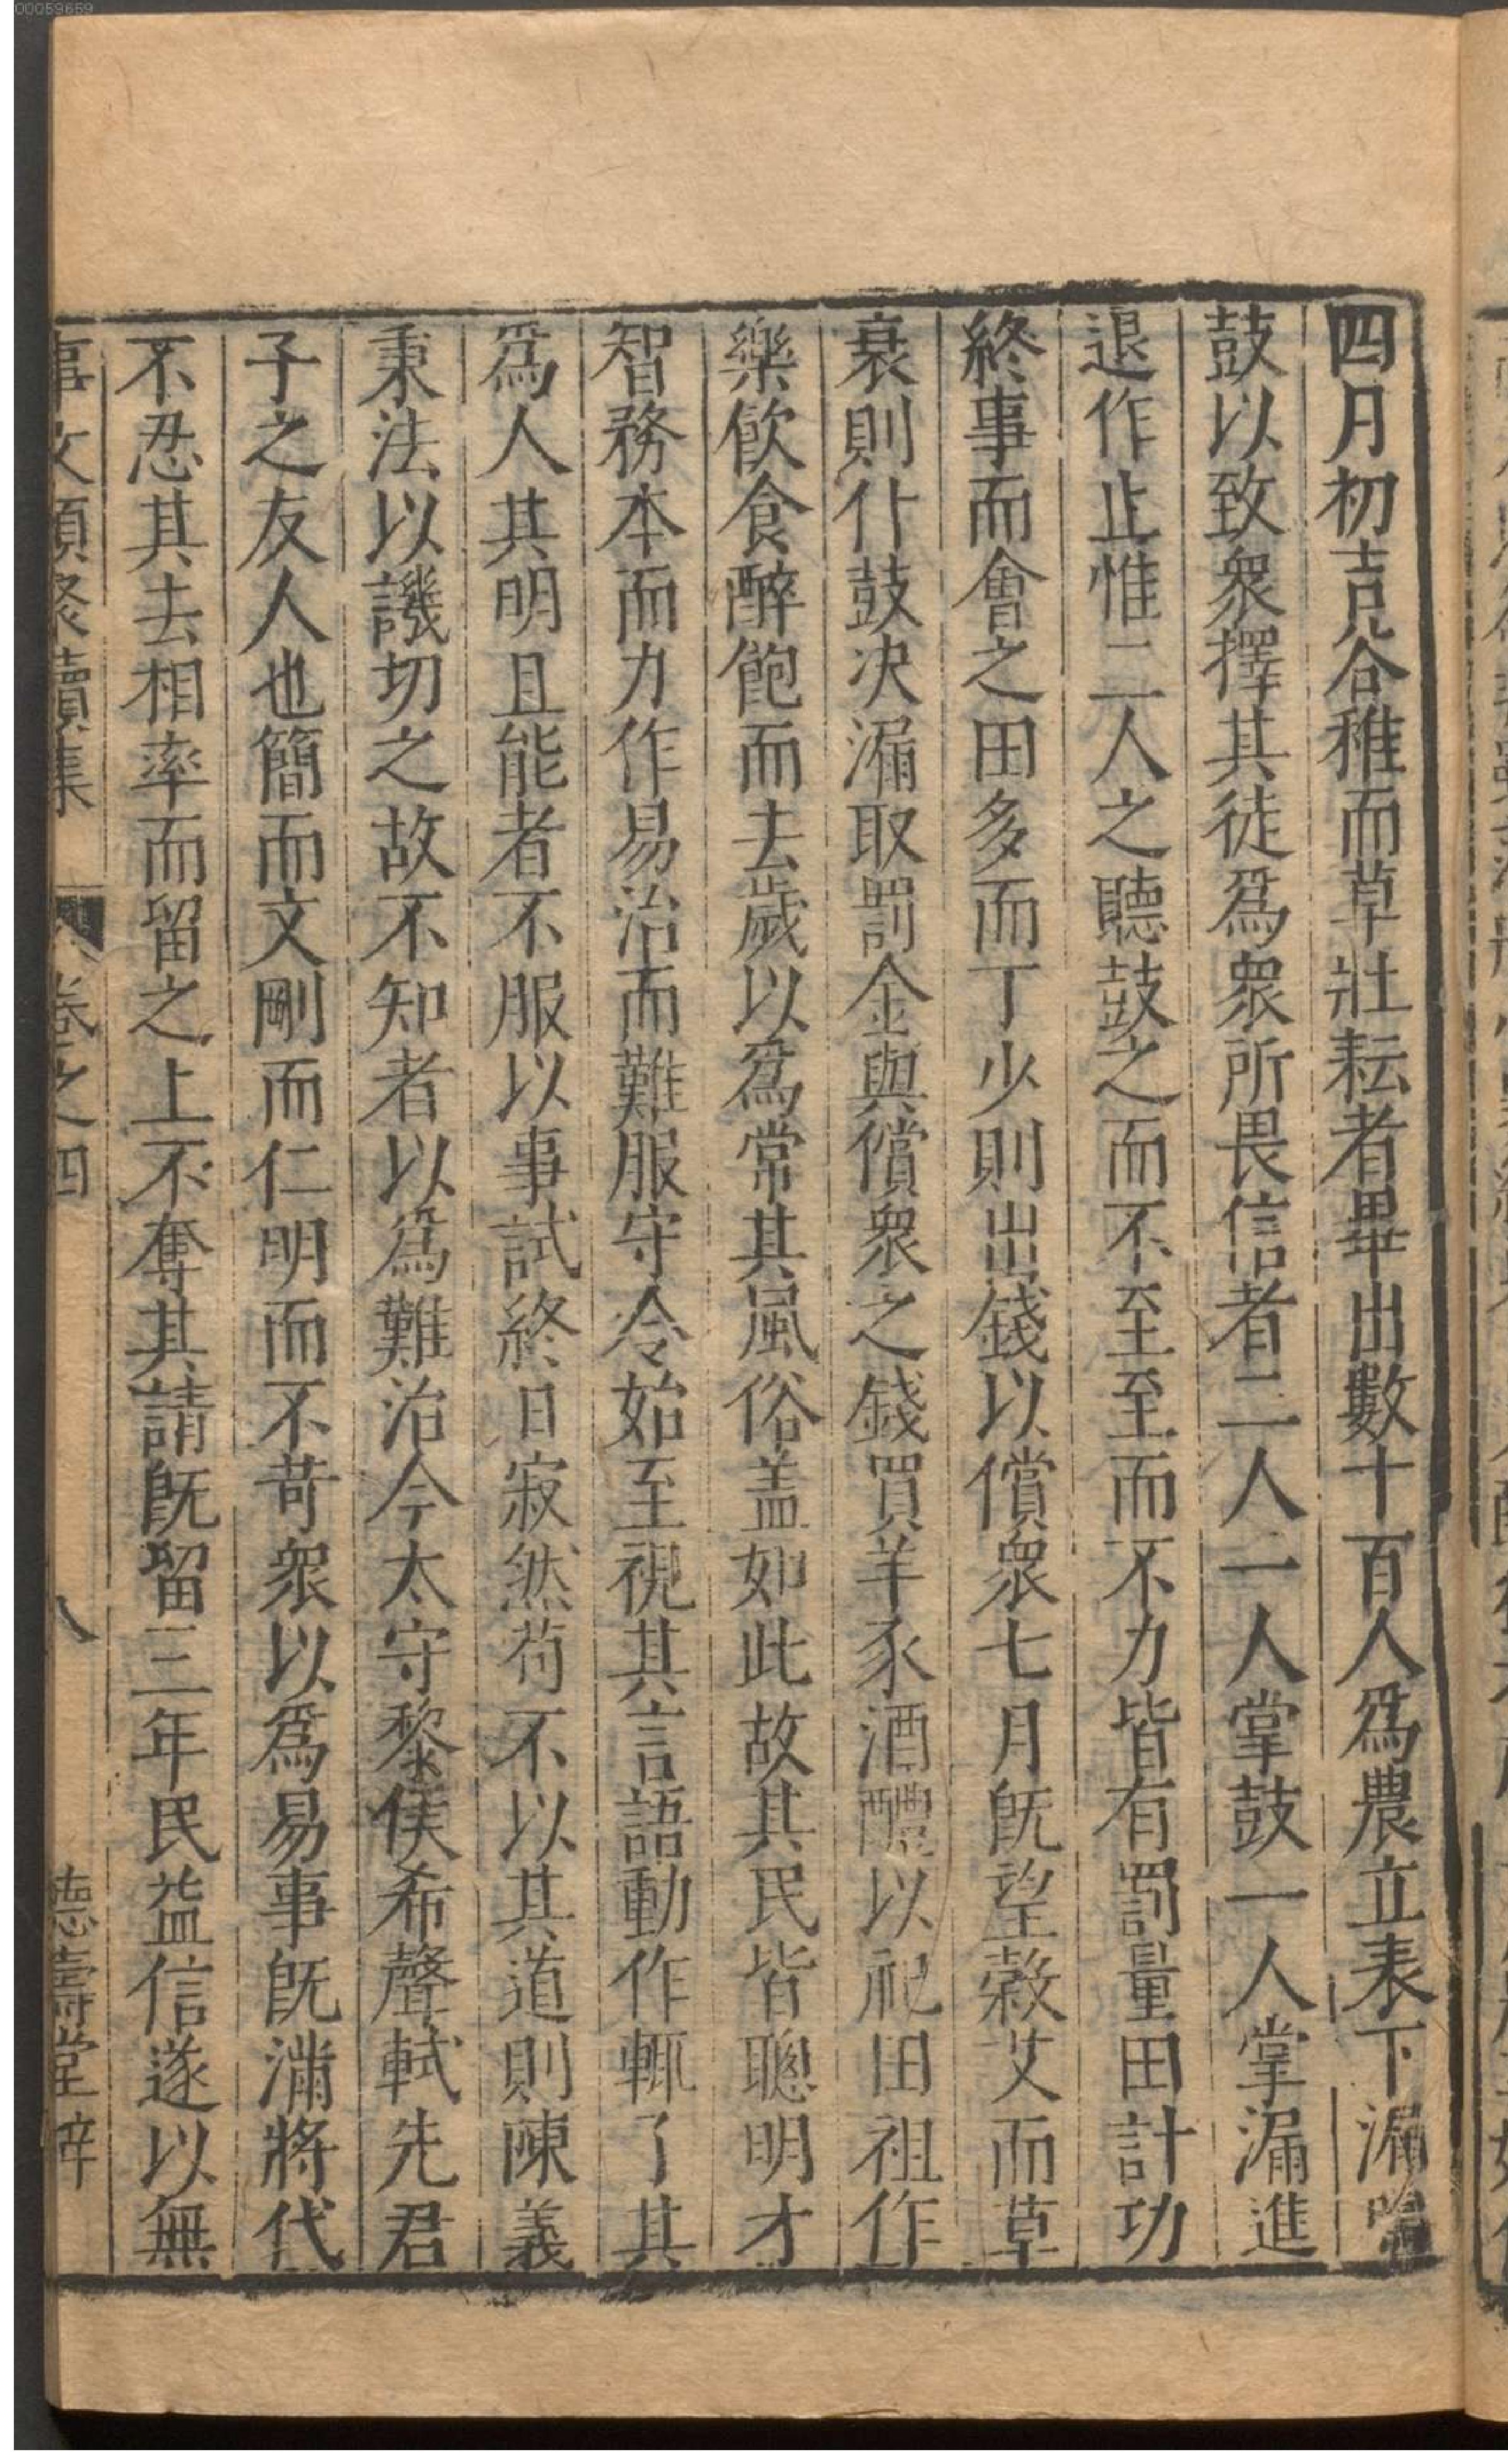 00059659
四月初吉谷稚而草壯耘者畢出數十百人爲農立表下漏鳴
鼓以致衆擇其徒爲衆所畏信者二人一人掌鼓一人掌漏進
退作止惟二人之聽鼓之而不至至而不力皆有罰量田計功
終事而會之田多而丁少則出錢以償衆七月既望榖艾而草
衰則仆鼓决漏取罰金與償衆之錢買羊豕酒醴以祀田祖作
樂飲食醉飽而去歲以爲常其風俗盖如此故其民皆聰明才
智務本而力作易治而難服守令始至視其言語動作輒了其
爲人其明且能者不服以事試終日寂然苟不以其道則陳義
秉法以譏切之故不知者以爲難治今太守黎侯希聲軾先君
子之友人也簡而文剛而仁明而不苛衆以爲易事既滿將代
不忍其去相率而留之上不奪其請既留三年民益信遂以無
事文類聚續集 卷之四 八 德壽堂梓